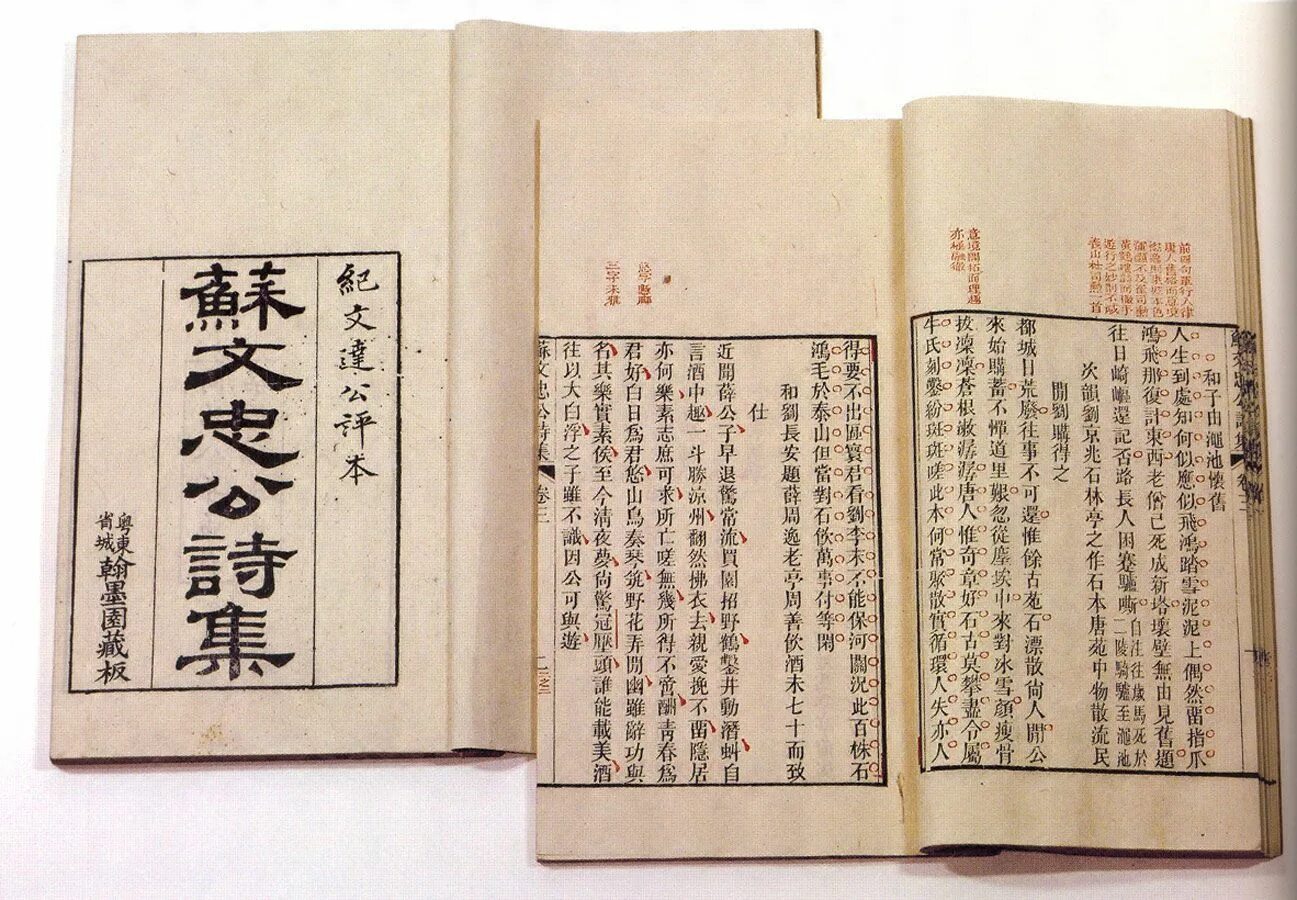 紀文達公評本
蘇文忠公詩集
粵東
省城
翰墨園藏板
前四句單行入律
唐人舊格而意境
恣逸則東坡本色
渾灝不及崔司勳
黃鶴樓詩而撒手
遊行之妙則不減
義山杜司勳一首
意境開拓而理趣
亦極融徹
蘇文忠公詩集 卷三
和子由澠池懷舊
人生到處知何似應似飛鴻踏雪泥泥上偶然畱指爪
鴻飛那復計東西老僧已死成新塔壞壁無由見舊題
往日崎嶇還記否路長人困蹇驢嘶自注往歲馬死於二陵騎驢至澠池
次韻劉京兆石林亭之作石本唐苑中物散流民
閒劉購得之
都城日荒廢往事不可還惟餘古苑石漂散尙人閒公
來始購蓄不憚道里艱忽從塵埃中來對冰雪顏瘦骨
拔凜凜蒼根漱潺潺唐人惟奇章好石古莫攀盡令屬
牛氏刻鑿紛斑斑嗟此本何常聚散實循環人失亦人
三字未雅
得要不出區寰君看劉李末不能保河關況此百株石
鴻毛於泰山但當對石飲萬事付等閑
和劉長安題薛周逸老亭周善飲酒未七十而致
仕
近聞薛公子早退驚常流買園招野鶴鑿井動潛虯自
言酒中趣一斗勝涼州翻然拂衣去親愛挽不畱隱居
亦何樂素志庶可求所亡嗟無幾所得不啻酬靑春爲
君好白日爲君悠山鳥奏琴筑野花弄閒幽雖辭功與
名其樂實素侯至今淸夜夢尙驚冠壓頭誰能載美酒
往以大白浮之子雖不識因公可與遊
蘇文忠公詩集 卷三